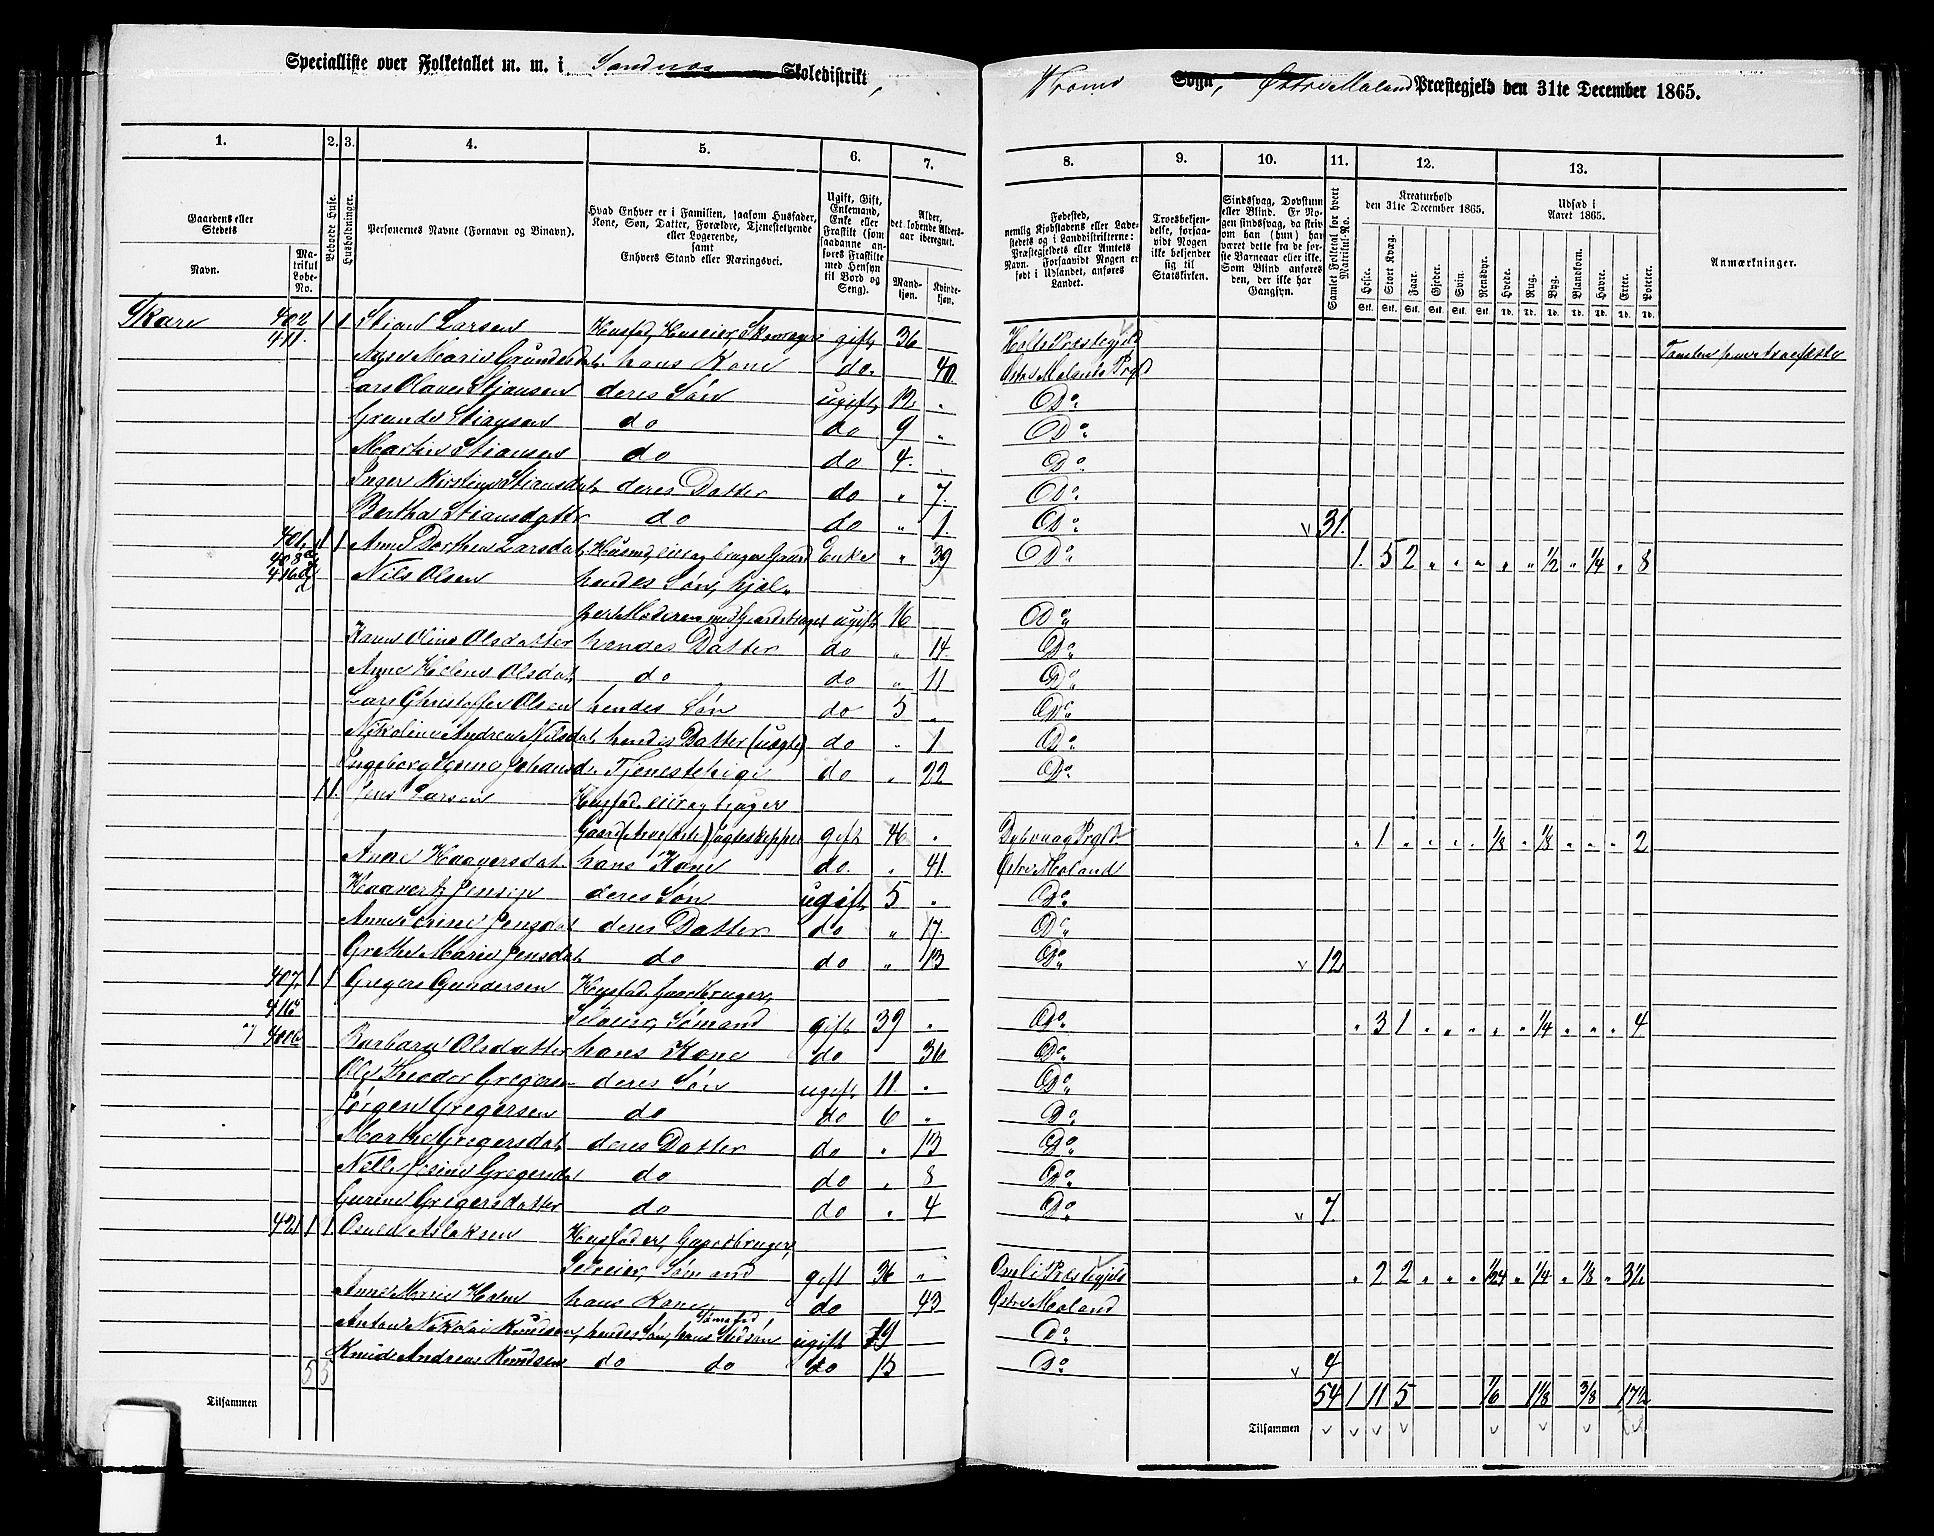 Specialliste over Folketallet m. m. i Sandnæs Skoledistrikt, Tromø Sogn, Østre Moland Præstegjeld den 31te December 1865.
1. 2. 3. 4. 5. 6. 7. 8. 9. 10. 11. 12. 13.
Gaardens eller Stedets
Navn.
Matrikul Løbe-No.
Beboede Huse.
Husholdninger.
Personernes Navne (Fornavn og Binavn).
Hvad Enhver er i Familien, saasom Husfader, Kone, Søn, Datter, Forældre, Tjenestetyende eller Logerende,
samt
Enhvers Stand eller Næringsvei.
Ugift, Gift, Enkemand, Enke eller Fraskilt (som saadanne anføres Fraskilte med Hensyn til Bord og Seng).
Alder, det løbende Alders-aar iberegnet.
Mandkjøn. Kvindekjøn.
Fødested,
nemlig Kjøbstadens eller Ladestedets og i Landdistrikterne: Præstegjeldets eller Amtets Navn. Forsaavidt Nogen er født i Udlandet, anføres Landet.
Troesbekjendelse, forsaavidt Nogen ikke bekjender sig til Statskirken.
Sindssvag, Døvstum eller Blind. Er Nogen sindssvag, da skrives om han (hun) har været dette fra de første Barneaar eller ikke. Som Blind anføres den, der ikke har Gangsyn.
Samlet Folketal for hvert Matrikul-No.
Kreaturhold den 31te December 1865.
Heste. Stort Kvæg. Faar. Gjeder. Svin. Rensdyr.
Udsæd i Aaret 1865.
Hvede. Rug. Byg. Blandkorn. Havre. Erter. Poteter.
Anmærkninger.
Stk. Stk. Stk. Stk. Stk. Stk. Td. Td. Td. Td. Td. Td. Td.
Skare 402 1 1 Stian Larsen Husfad, Huseier gift 36 Holts Præstegjeld
411. Marie hans Kone do. 40 Østre Molands Prgd
Lars Olaves Stiansen deres Søn ugift 12 Do
Grunde Stiansen do do 9 " Do
Martin Stiansen do do 4. Do
Inger Kirstine Stiansdat. deres Datter do " 7. Do
Bertha Stiansdatter do do " 1. Do 31.
1 1 Anne Dorthea Larsdat. Enke " 39 Do 1. 5 2 " " " " " 1/2 " 1/4 " 8
Nils Olsen hendes Søn, hjæl-
per Moderen med Gaardsbruget ugift 16 Do
Karen Oline Olsdatter hendes Datter do " 14. Do
Anne Helene Olsdat. do do " 11 Do
Lars Christoffer Olsen hendes Søn do 5 " Do
Nikoline Andrea Nilsdat. hendes Datter (uægte) do " 1 Do
Ingeborg Johansd. Tjenestepige do " 22 Do
1 1. Jens Larsen Husfad.
gift 46 " Dybvaag Prgld " 1 " " " " 1/8 " 1/8 " " " 2
Anne Haagersdat. hans Kone do. " 41. Østre Moland
Jensen deres Søn ugift 5 " Do
Jensdat deres Datter do " 17. Do
Grethe Marie Jensdat. do do " 13 Do 12
407. 1 1 Gregers Gundersen Husfad. Gaardbruger,
416 Selveier, Sømand gift 39 " Do " 3 1 " " " " " 1/4 " " " 4
Barbara Olsdatter hans Kone do 36 Do
Ole Theodor Gregersen deres Søn ugift 11. " Do
Jørgen Gregersen do do 6 " Do
Marthe Gregersdat. deres Datter do " 13 Do
Gregersdat do do " 8 Do
Gurine Gregersdatter do do " 4 Do 7.
421 1 1. Osuld Aslaksen Husfader, Gaardbruger,
Selveier, Sømand gift 36 " Omli Præstegjeld " 2 2 " " " 1/24 " 1/4 " 1/8 " 3 1/2
Anne Marie hans Kone do 43 Østre Moland
Anton Nikolai Knudsen, hendes Søn, hans Stedsøn ugift 19 Do
Knud Andreas Knudsen do do do 13 Do 4
5 5
54 1 11 5 1/6 1 1/8 3/8 17 1/2
Tilsammen
Tilsammen